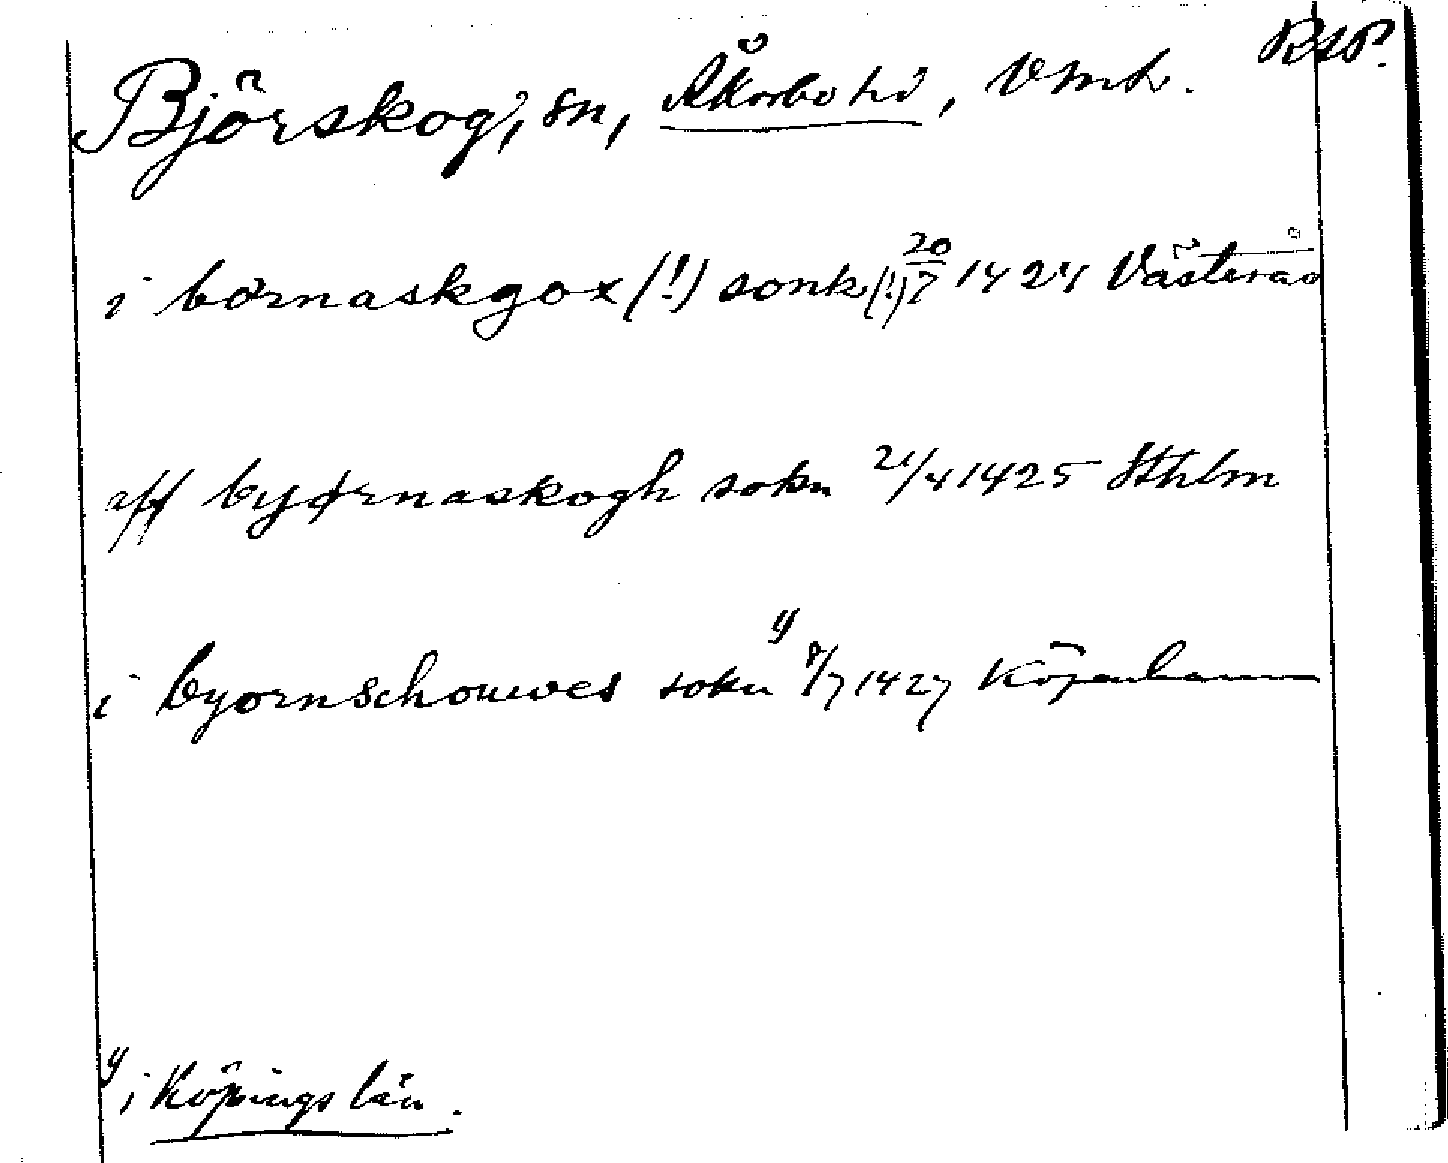 Björskog, sn, Åkerbo hd, Vml. RAP.
i bornaskgox (!) sonk (!) 20/7 1424 Västerås
aff byørnaskogh sokn 21/4 1425 Sthlm
i byornschouwes sokn 1) 8/7 1427 Köpenhamn
1) i Köpings län.